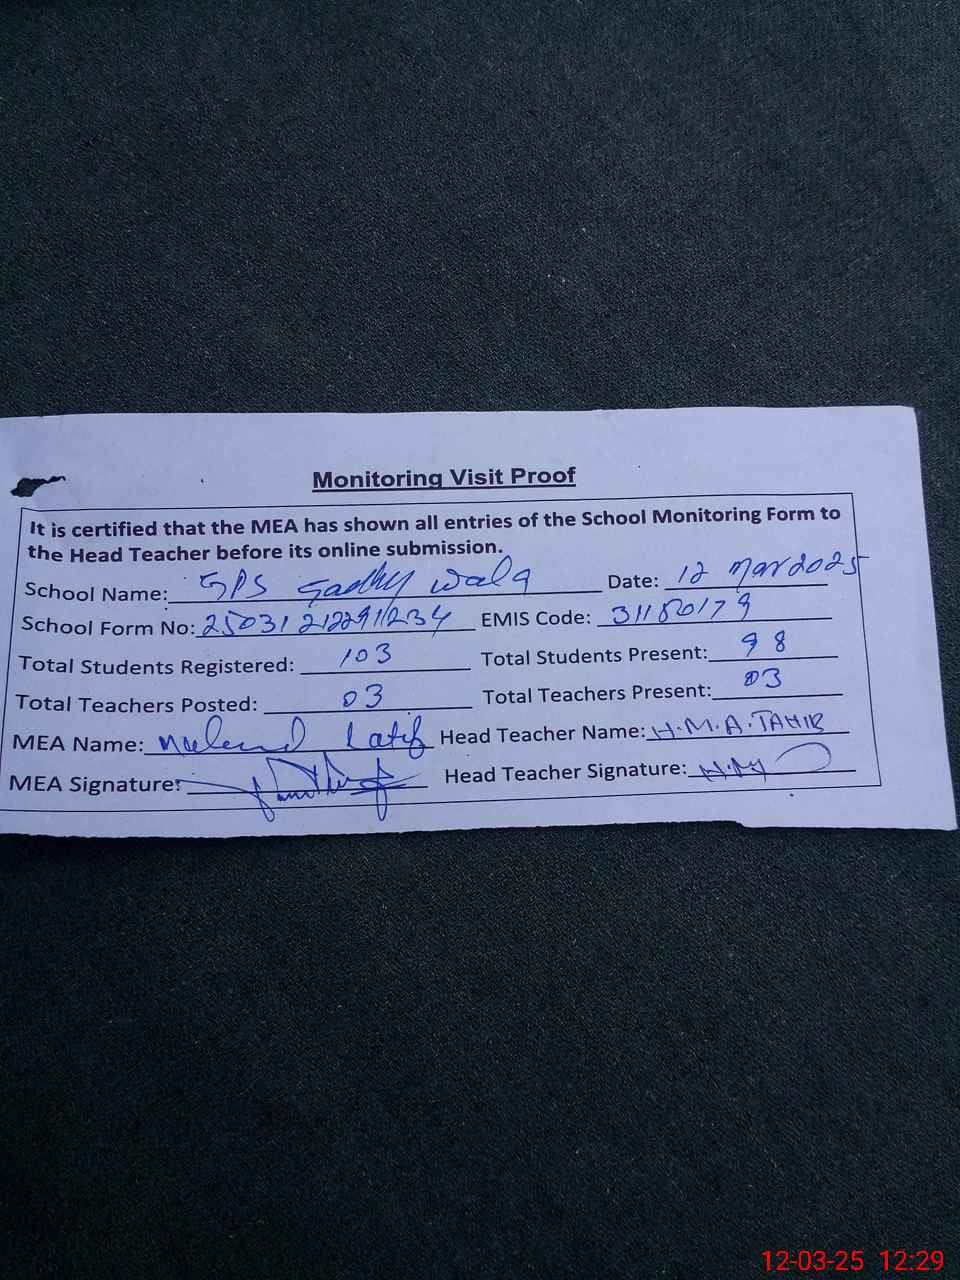 Monitoring Visit Proof
It is certified that the MEA has shown all entries of the School Monitoring Form to
the Head Teacher before its online submission.
School Name: GPS Gadhy wala Date: 12 Mar 2025
School Form No: EMIS Code: 31180179
Total Students Registered: 103 Total Students Present: 98
Total Teachers Posted: 03 Total Teachers Present: 03
MEA Name: Latif Head Teacher Name: H.M.A.TAHIR
MEA Signature: Head Teacher Signature:
12-03-25 12:29